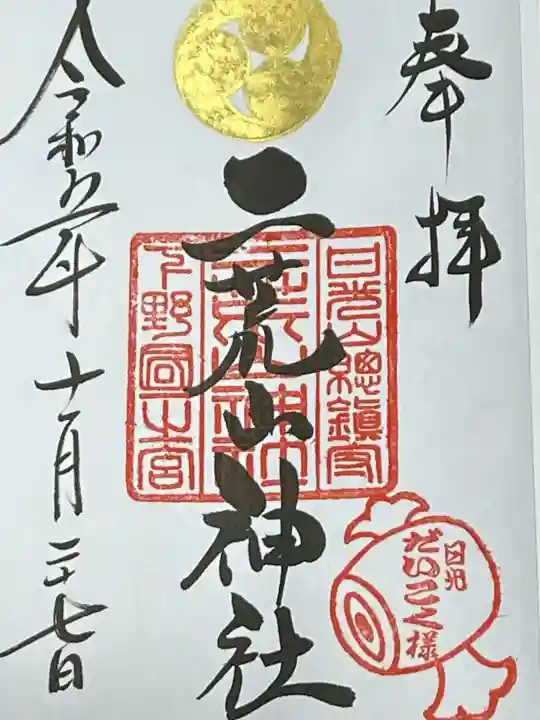 奉拝
日光山總鎮守
二荒山神社
二荒山神社
下野國一之宮
日光
だいこく様
令和五年十一月二十七日